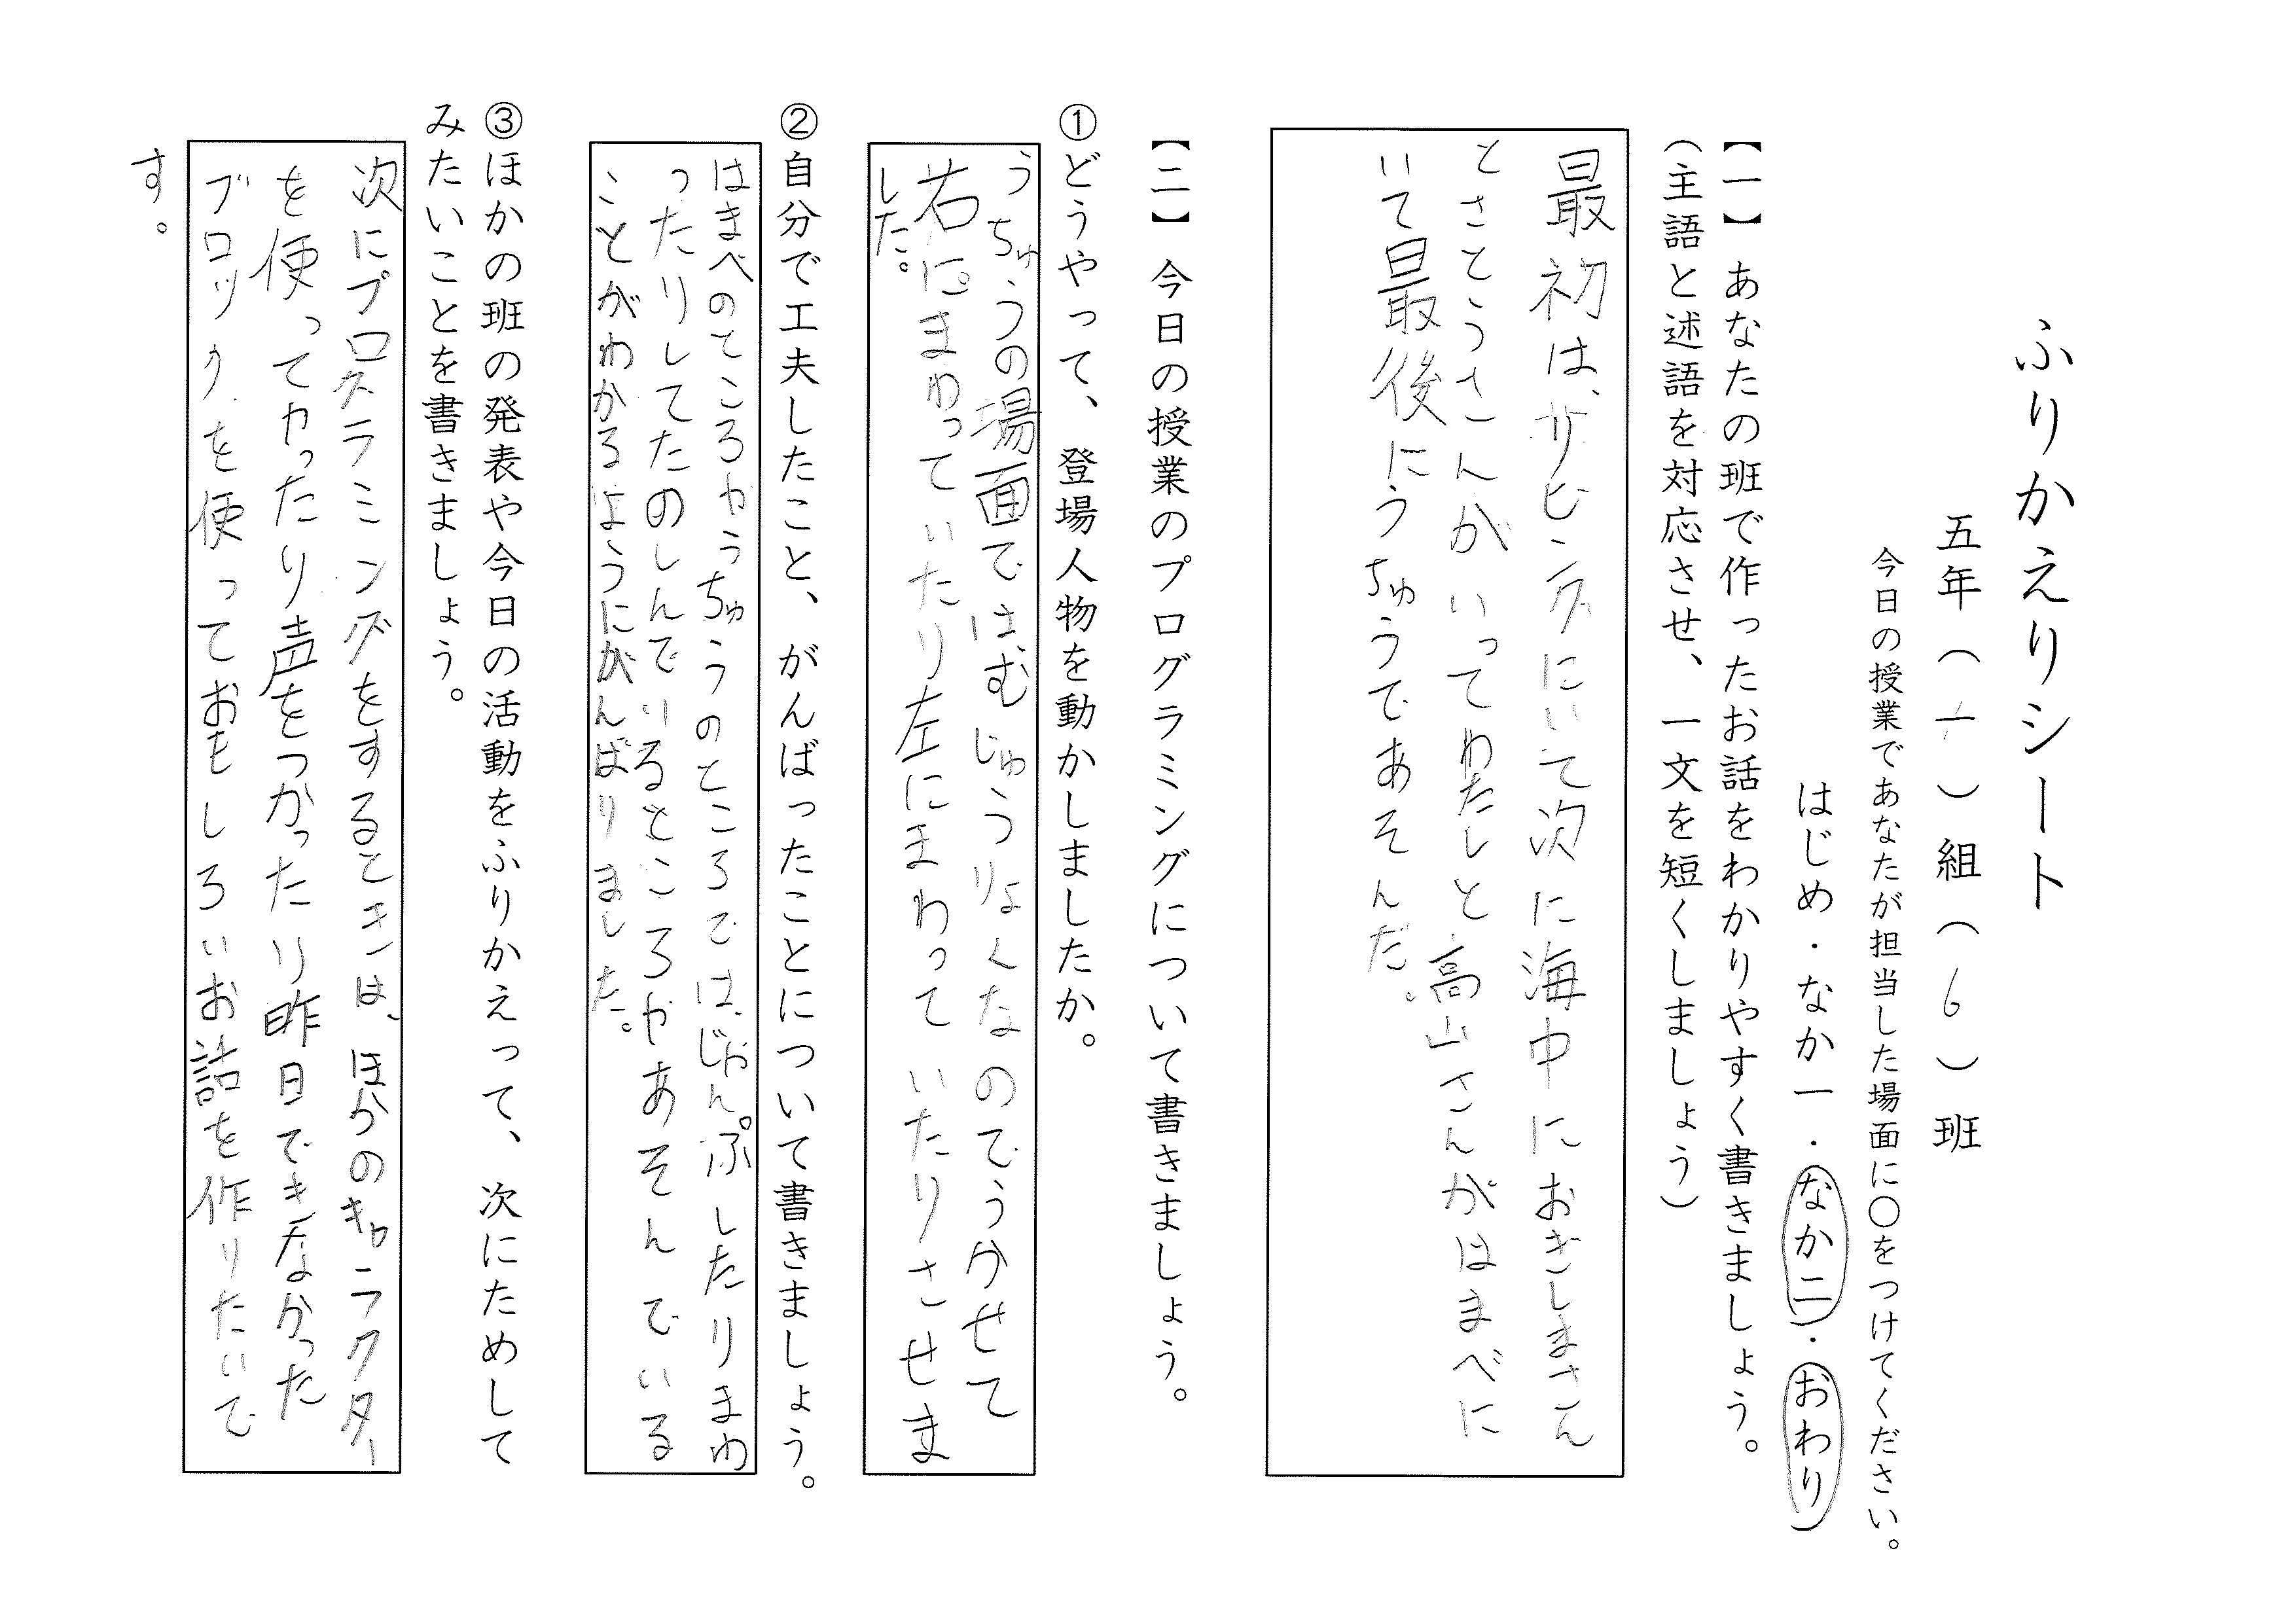 ふりかえりシート
五年（一）組（6）班
今日の授業であなたが担当した場面に〇をつけてください。
はじめ・なか一・なか二・おわり
【一】あなたの班で作ったお話をわかりやすく書きましょう。
（主語と述語を対応させ、一文を短くしましょう）
最初は、サビングにいて次に海中におぎしまさん
とさとうさんがいってわたしと高山さんがはまべに
いて最後にうちゅうであそんだ。
【二】今日の授業のプログラミングについて書きましょう。
①どうやって、登場人物を動かしましたか。
うちゅうの場面ではむじゅうりょくなのでうかせて
右にまわっていたり左にまわっていたりさせま
した。
②自分で工夫したこと、がんばったことについて書きましょう。
はまべのところやうちゅうのところでは、じゃんぷしたりまわ
ったりしてたのしんでいるところやあそんでいる
ことがわかるようにがんばりました。
③ほかの班の発表や今日の活動をふりかえって、次にためして
みたいことを書きましょう。
次にプログラミングをするときは、ほかのキャラクター
を使ってやったり声をつかったり昨日できなかった
ブロックを使っておもしろいお話を作りたいで
す。